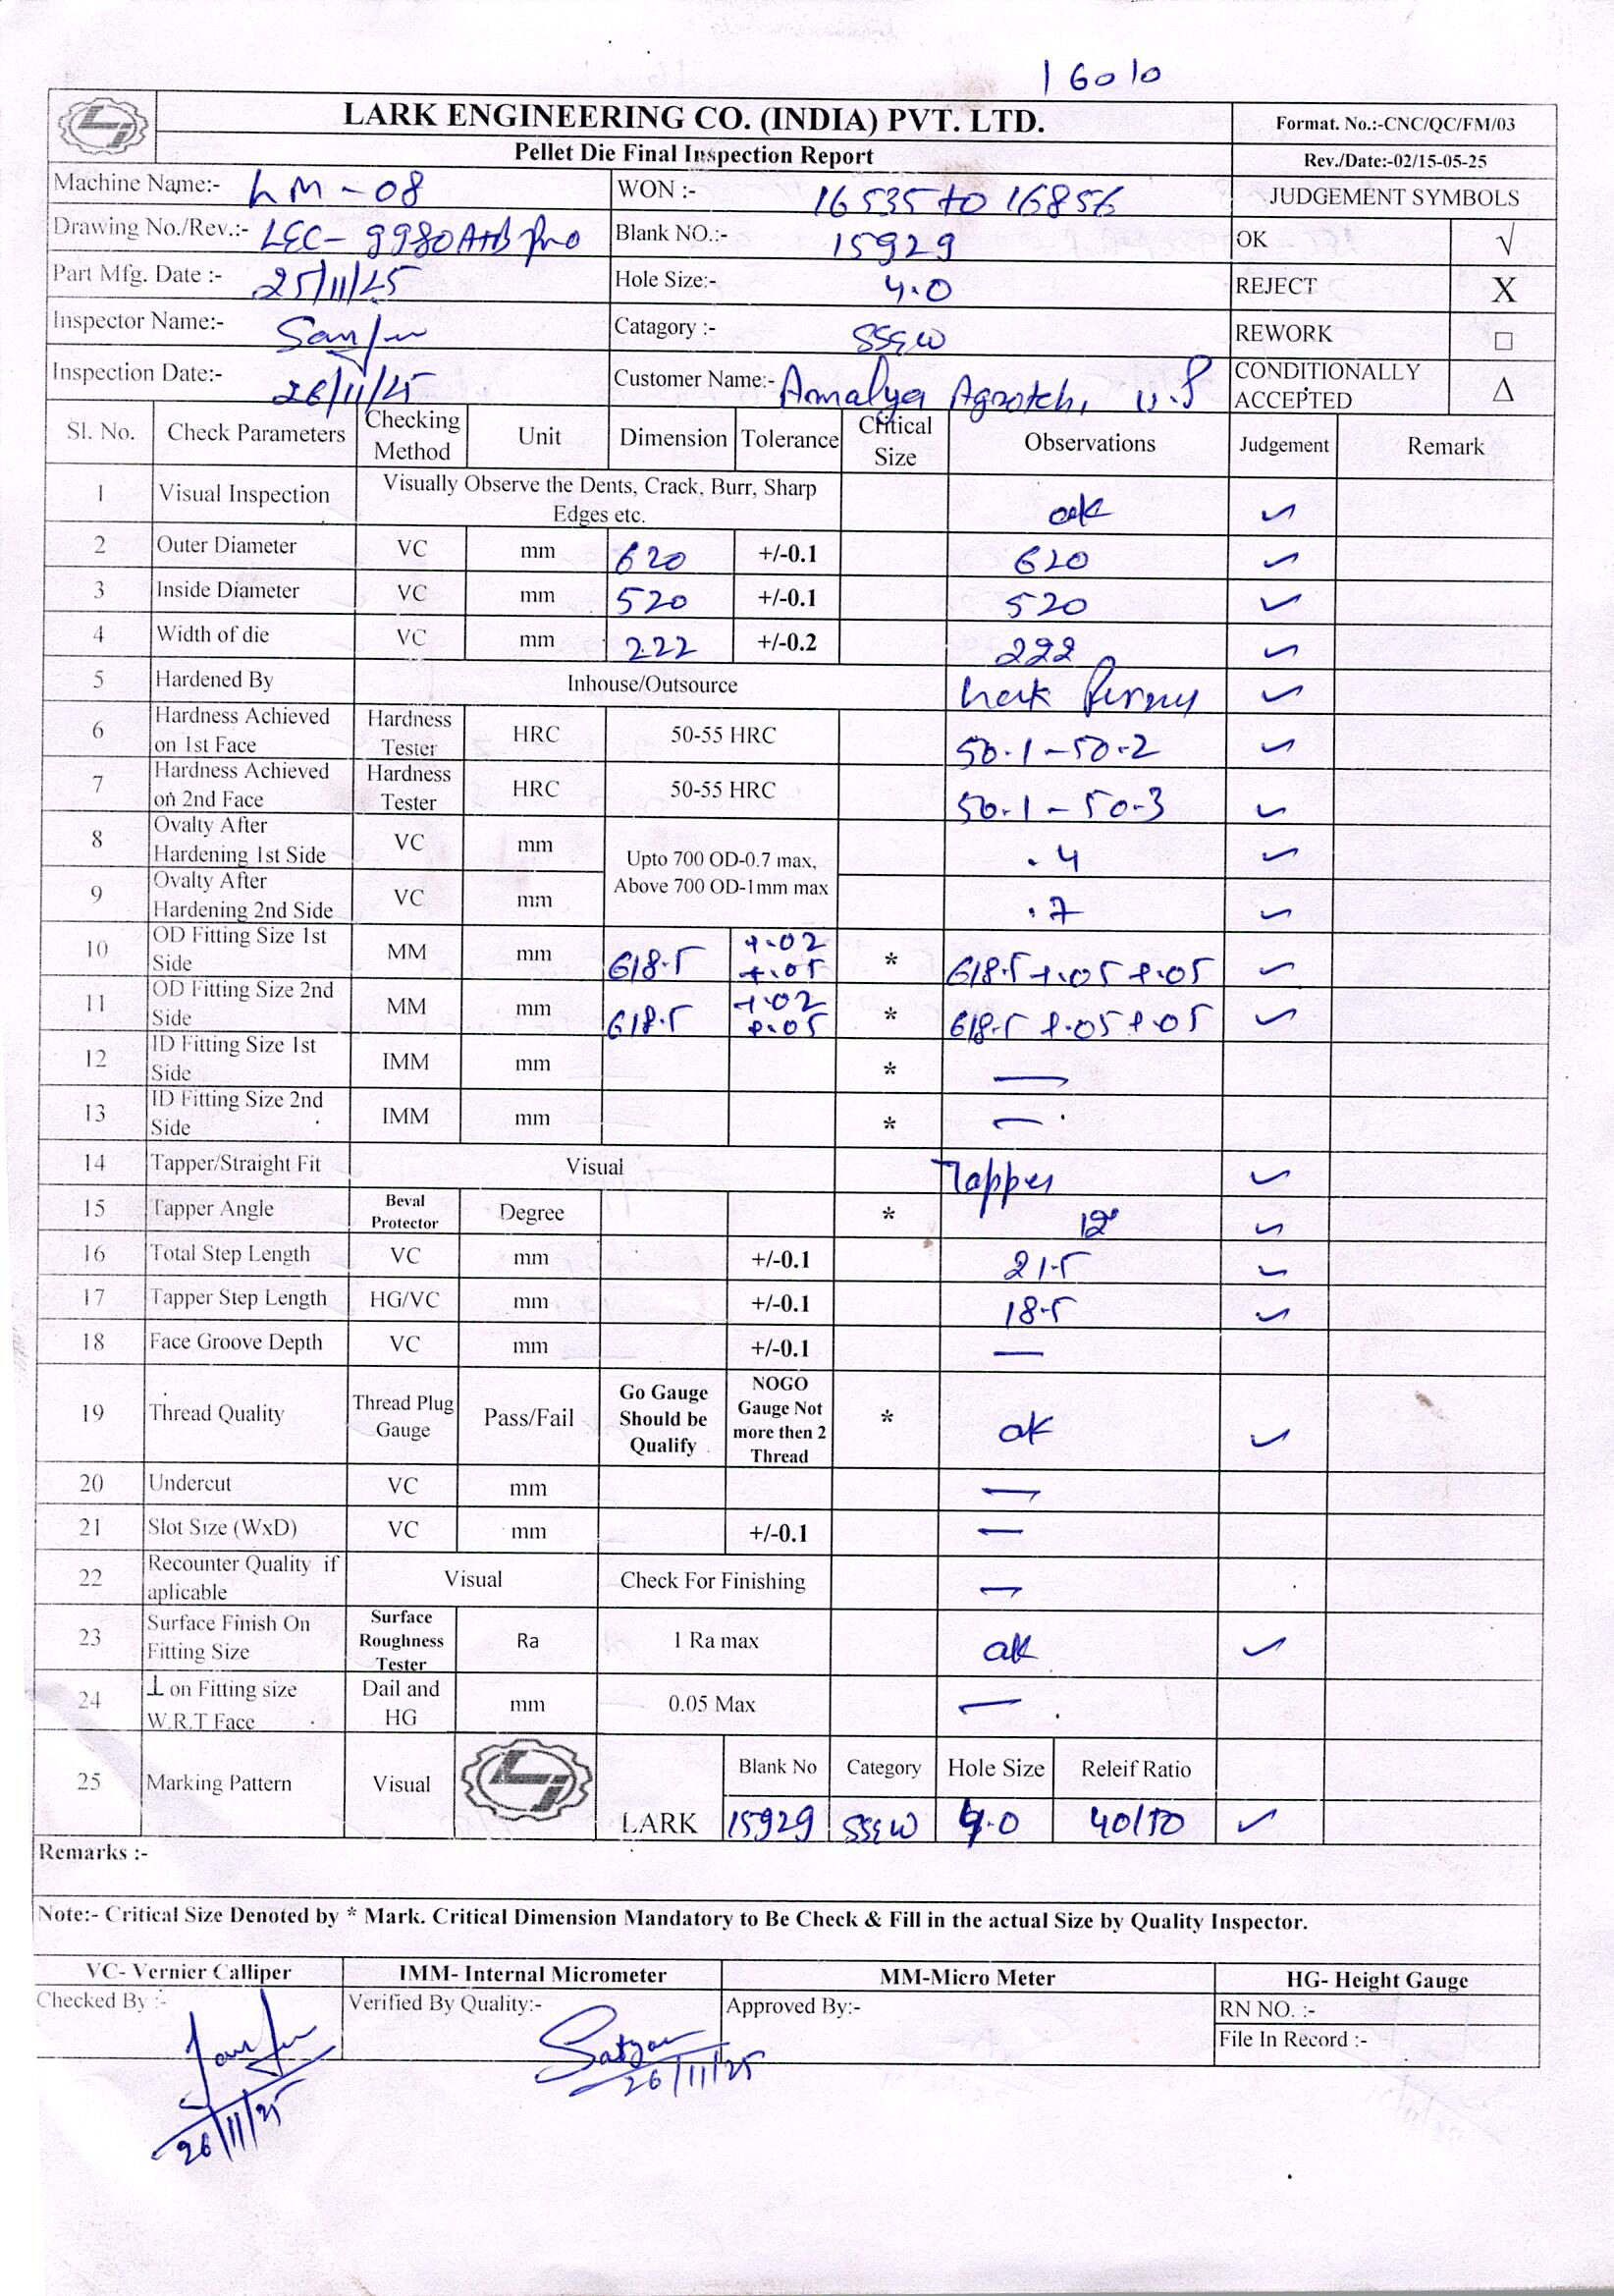 16010
LARK ENGINEERING CO. (INDIA) PVT. LTD.
Format. No.:-CNC/QC/FM/03
Pellet Die Final Inspection Report
Rev./Date:-02/15-05-25
Machine Name:- LM-08 WON :- 16535 to 16856 JUDGEMENT SYMBOLS
Drawing No./Rev.:- LEC-9980A+B Pro Blank NO.:- 15929 OK √
Part Mfg. Date :- 25/11/25 Hole Size:- 4.0 REJECT X
Inspector Name:- Catagory :- SSGW REWORK □
Inspection Date:- 26/11/25 Customer Name:- Agrotch, U.P CONDITIONALLY ACCEPTED Δ
Sl. No. Check Parameters Checking Method Unit Dimension Tolerance Critical Size Observations Judgement Remark
1 Visual Inspection Visually Observe the Dents, Crack, Burr, Sharp Edges etc. ok ✓
2 Outer Diameter VC mm 620 +/-0.1 620 ✓
3 Inside Diameter VC mm 520 +/-0.1 520 ✓
4 Width of die VC mm 222 +/-0.2 222 ✓
5 Hardened By Inhouse/Outsource ✓
6 Hardness Achieved on 1st Face Hardness Tester HRC 50-55 HRC 50.1-50.2 ✓
7 Hardness Achieved on 2nd Face Hardness Tester HRC 50-55 HRC 50.1-50.3 ✓
8 Ovalty After Hardening 1st Side VC mm Upto 700 OD-0.7 max, Above 700 OD-1mm max .4 ✓
9 Ovalty After Hardening 2nd Side VC mm .7 ✓
10 OD Fitting Size 1st Side MM mm 618.5 +.02 +.05 * 618.5 +.05 +.05 ✓
11 OD Fitting Size 2nd Side MM mm 618.5 +.02 +.05 * 618.5 +.05 +.05 ✓
12 ID Fitting Size 1st Side IMM mm * —
13 ID Fitting Size 2nd Side IMM mm * —
14 Tapper/Straight Fit Visual Tapper ✓
15 Tapper Angle Beval Protector Degree * 12° ✓
16 Total Step Length VC mm +/-0.1 21.5 ✓
17 Tapper Step Length HG/VC mm +/-0.1 18.5 ✓
18 Face Groove Depth VC mm +/-0.1 —
19 Thread Quality Thread Plug Gauge Pass/Fail Go Gauge Should be Qualify NOGO Gauge Not more then 2 Thread * ok ✓
20 Undercut VC mm —
21 Slot Size (WxD) VC mm +/-0.1 —
22 Recounter Quality if aplicable Visual Check For Finishing —
23 Surface Finish On Fitting Size Surface Roughness Tester Ra 1 Ra max ok ✓
24 ⊥ on Fitting size W.R.T Face Dail and HG mm 0.05 Max —
25 Marking Pattern Visual LARK Blank No Category Hole Size Releif Ratio
15929 SSGW 4.0 40/50 ✓
Remarks :-
Note:- Critical Size Denoted by * Mark. Critical Dimension Mandatory to Be Check & Fill in the actual Size by Quality Inspector.
VC- Vernier Calliper IMM- Internal Micrometer MM-Micro Meter HG- Height Gauge
Checked By :- Verified By Quality:- Approved By:- RN NO. :-
File In Record :-
26/11/25
26/11/25